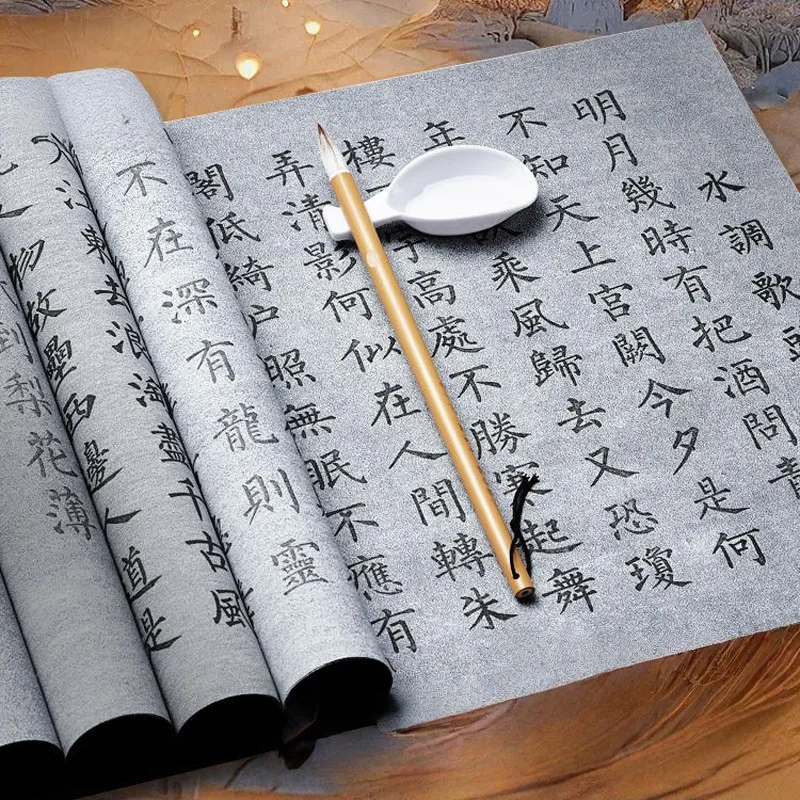 水調歌頭
明月幾時有把酒問青
不知天上宮闕今夕是何
年欲乘風歸去又恐瓊
樓宇高處不勝寒起舞
弄清影何似在人間轉朱
閣低綺戶照無眠不應有
不在深有龍則靈
江去浪盡千古風
物故壘西邊人道是
到梨花薄